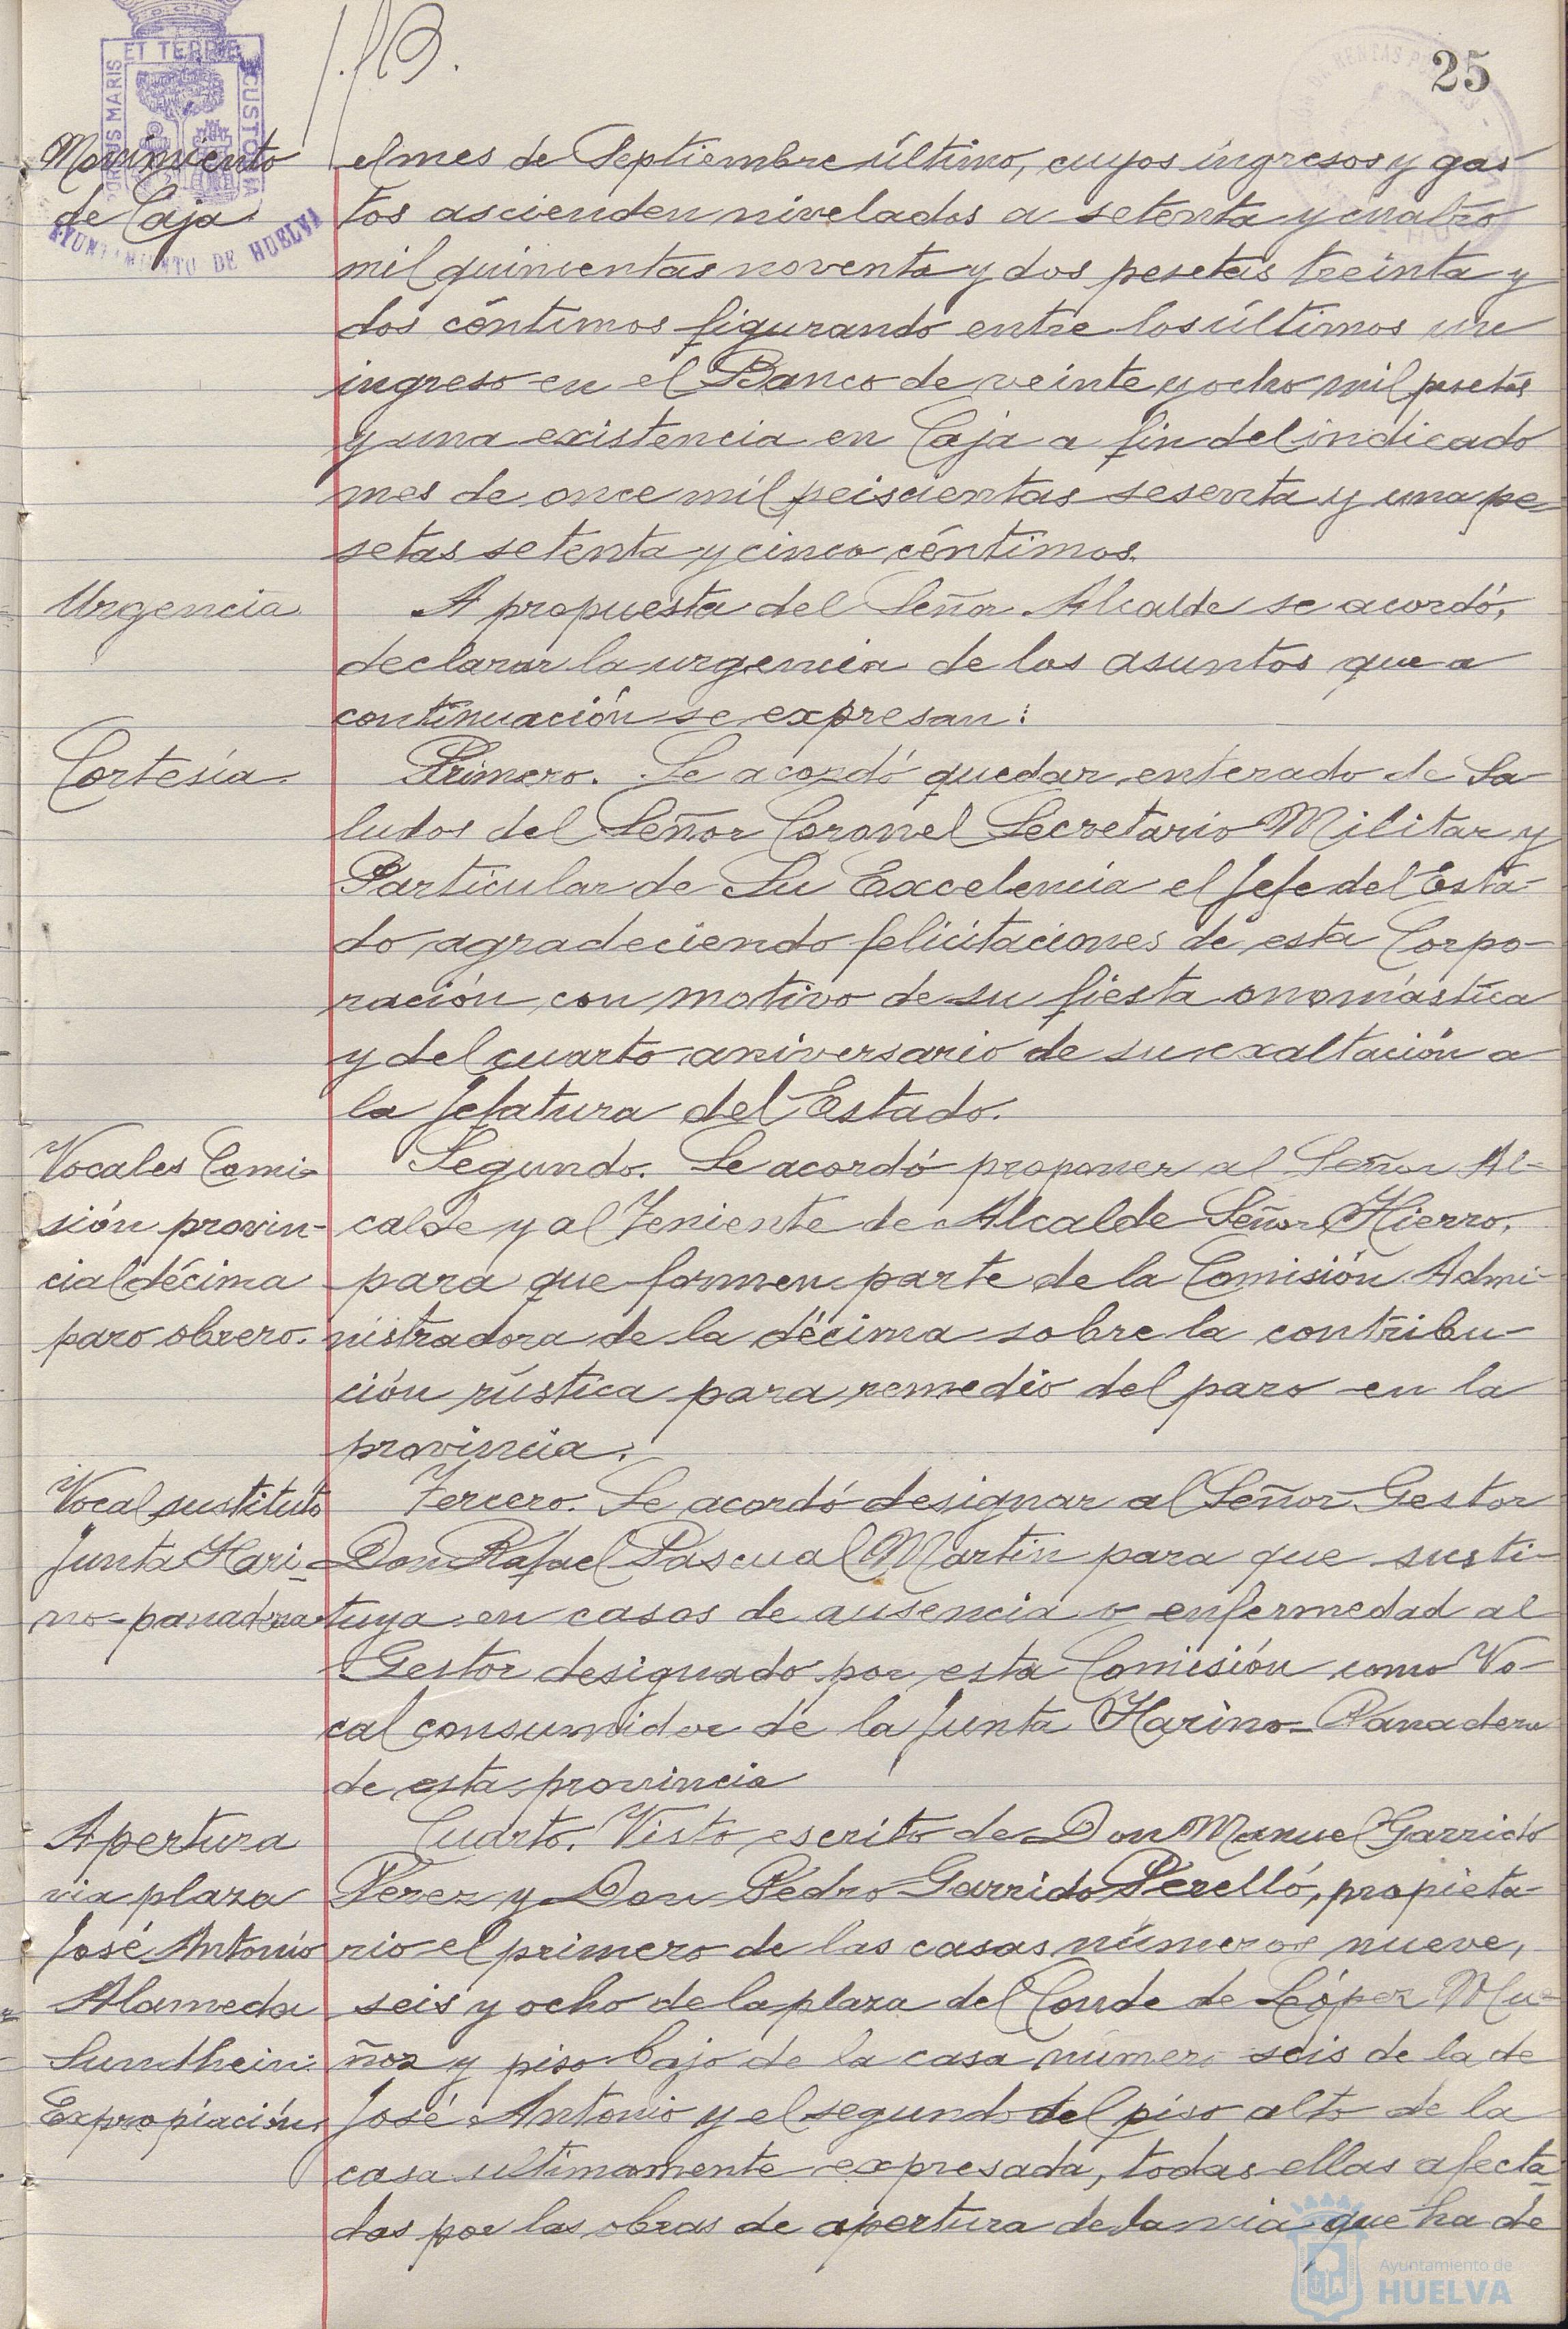 25
Movimiento
de Caja
el mes de Septiembre último, cuyos ingresos y gas-
tos ascienden nivelados a setenta y cuatro
mil quinientas noventa y dos pesetas treinta y
dos céntimos figurando entre los últimos un
ingreso en el Banco de veinte y ocho mil pesetas
y una existencia en Caja a fin del indicado
mes de once mil seiscientas sesenta y una pe-
setas setenta y cinco céntimos.
Urgencia
A propuesta del Señor Alcalde se acordó,
declarar la urgencia de los asuntos que a
continuación se expresan:
Cortesía.
Primero. Se acordó quedar enterado de Sa-
ludos del Señor Coronel Secretario Militar y
Particular de Su Excelencia el Jefe del Esta-
do agradeciendo felicitaciones de esta Corpo-
ración con motivo de su fiesta onomástica
y del cuarto aniversario de su exaltación a
la Jefatura del Estado.
Vocales Comi-
sión provin-
cial décima
paro obrero.
Segundo. Se acordó proponer al Señor Al-
calde y al Teniente de Alcalde Señor Hierro,
para que formen parte de la Comisión Admi-
nistradora de la décima sobre la contribu-
ción rústica para remedio del paro en la
provincia.
Vocal sustituto
Junta Hari-
no-panadera
Tercero. Se acordó designar al Señor Gestor
Don Rafael Pascual Martin para que susti-
tuya en casos de ausencia o enfermedad al
Gestor designado por esta Comisión como Vo-
cal consumidor de la Junta Harino-Panadera
de esta provincia
Apertura
via plaza
José Antonio
Alameda
Sundhein:
Expropiación.
Cuarto. Visto escrito de Don Manuel Garrido
Pérez y Don Pedro Garrido Perelló, propieta-
rio el primero de las casas números nueve,
seis y ocho de la plaza del Conde de López Mu-
ñoz y piso bajo de la casa número seis de la de
José Antonio y el segundo del piso alto de la
casa ultimamente expresada, todas ellas afecta-
das por las obras de apertura de la via que ha de
PORTUS MARIS ET TERRE CUSTODIA
AYUNTAMIENTO DE HUELVA
Ayuntamiento de
HUELVA